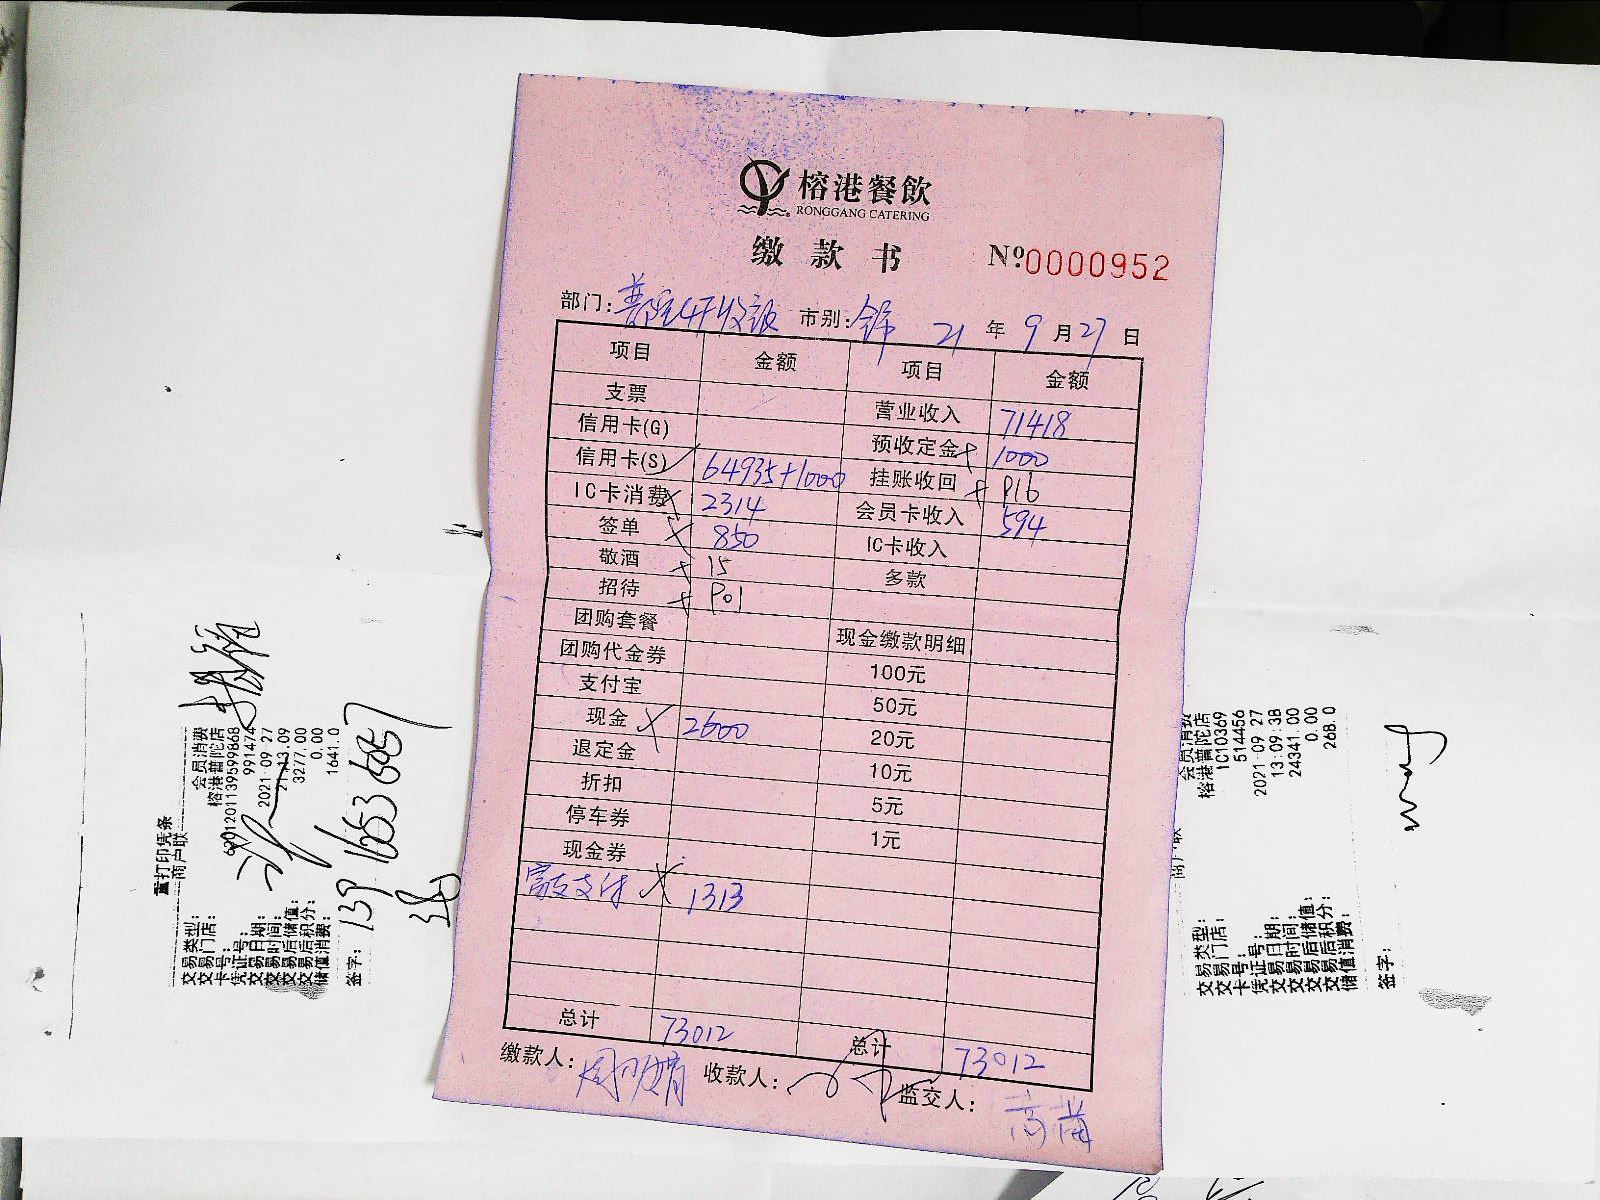 榕港餐飲
RONGGANG CATERING
缴款书 Nº0000952
部门: 市别: 21 年 9 月 27 日
项目 金额 项目 金额
支票 营业收入 71418
信用卡(G) 预收定金 1000
信用卡(S) 64935+1000 挂账收回 P16
IC卡消费 2314 会员卡收入 594
签单 850 IC卡收入
敬酒 15 多款
招待 P01
团购套餐 现金缴款明细
团购代金券 100元
支付宝 50元
现金 2600 20元
退定金 10元
折扣 5元
停车券 1元
现金券
1313
总计 73012 总计 73012
缴款人: 收款人: 监交人:
重打印凭条
商户联
交易类型: 会员消费
交易门店: 榕港普陀店
卡号: 6201201139599868
凭证号: 991474
交易日期: 2021-09-27
交易时间:
交易后储值: 3277.00
交易后积分: 0.00
储值消费: 1641.0
签字:
交易类型: 会员消费
交易门店: 榕港普陀店
卡号: IC10369
凭证号: 514456
交易日期: 2021-09-27
交易时间: 13:09:38
交易后储值: 24341.00
交易后积分: 0.00
储值消费: 268.0
签字: